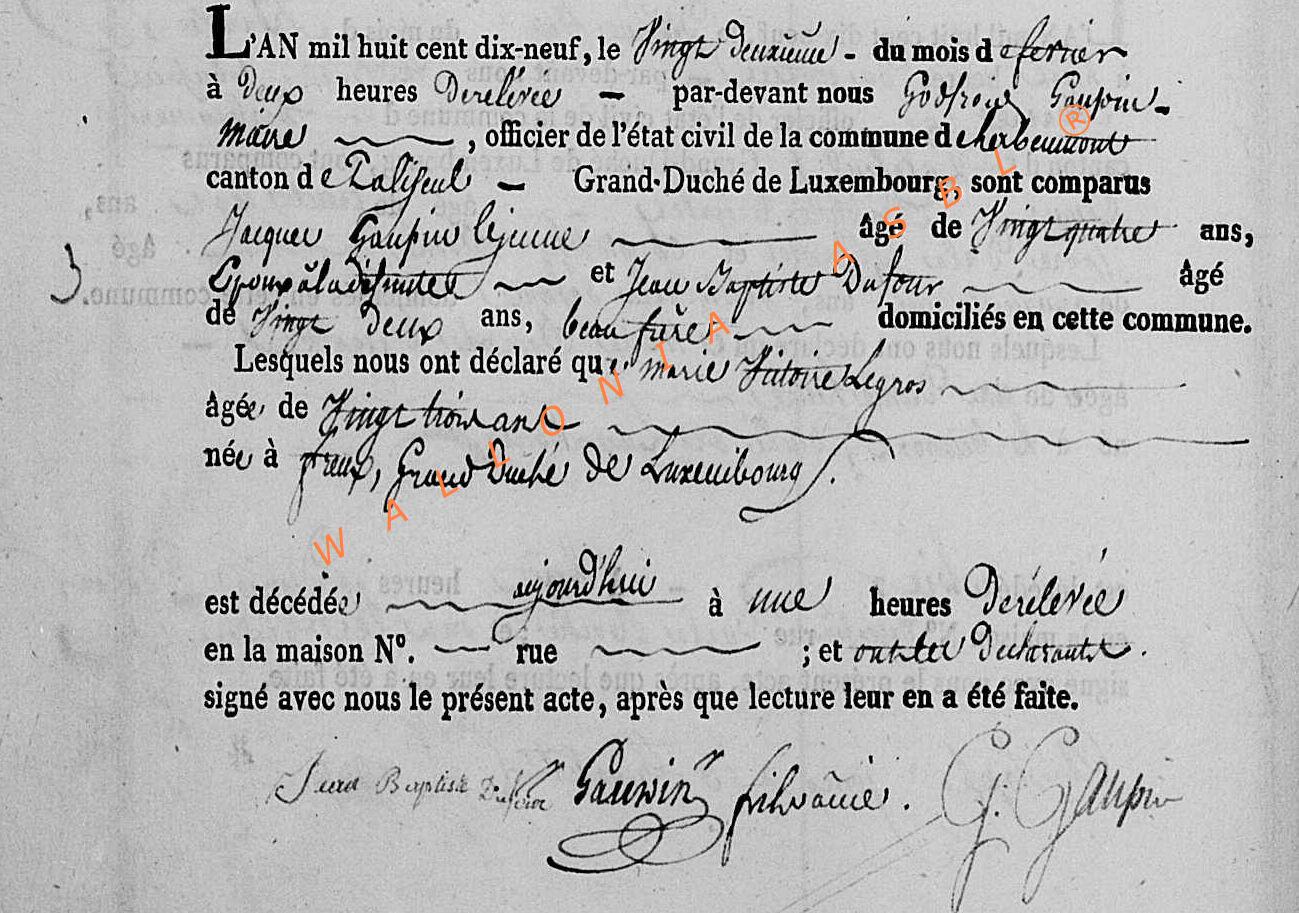 L'AN mil huit cent dix-neuf, le Vingt deuxieme - du mois de fevrier
à Deux heures Derelevée — par-devant nous Godfroid Gaupin -
maire , officier de l'état civil de la commune d'herbeumont
canton de Paliseul — Grand-Duché de Luxembourg, sont comparus
Jacques Gaupin lejeune âgé de Vingt quatre ans,
3 Epoux à la défunte et Jean Baptiste Dufour âgé
de Vingt Deux ans, beau frère domiciliés en cette commune.
Lesquels nous ont déclaré que marie Victoire Legros
âgée de Vingt trois ans
née à fraux, Grand Duché de Luxembourg.
est décédée aujourd'hui à une heures Derelevée
en la maison N°. — rue ; et ont les Declarants .
signé avec nous le présent acte, après que lecture leur en a été faite.
Jean Baptiste Dufour Gauwin G: Gaupin
WALLONIA ASBL ®